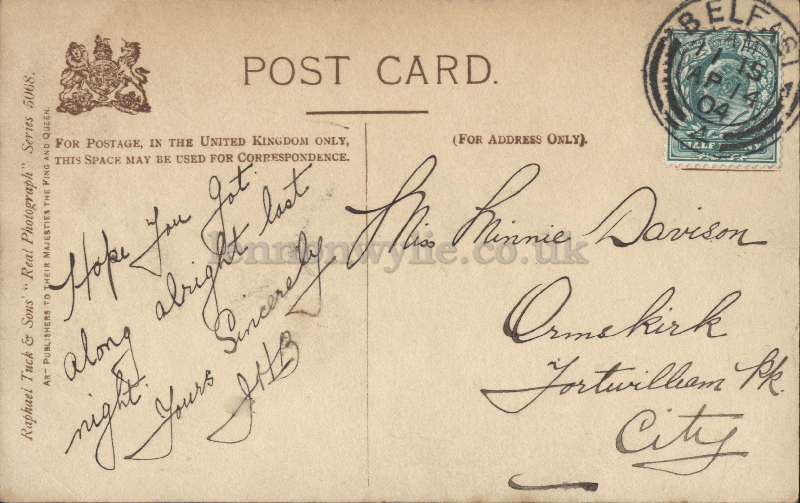 POST CARD.
FOR POSTAGE, IN THE UNITED KINGDOM ONLY,
THIS SPACE MAY BE USED FOR CORRESPONDENCE.
(FOR ADDRESS ONLY).
Raphael Tuck & Sons' "Real Photograph" Series 5068.
ART PUBLISHERS TO THEIR MAJESTIES THE KING AND QUEEN.
Hope You Got
along alright last
night.
Yours Sincerely
JHB
Miss Minnie Davison
Ormskirk
Fortwilliam Pk.
City
BELFAST
AP 14
04
HALF
lennonwylie.co.uk